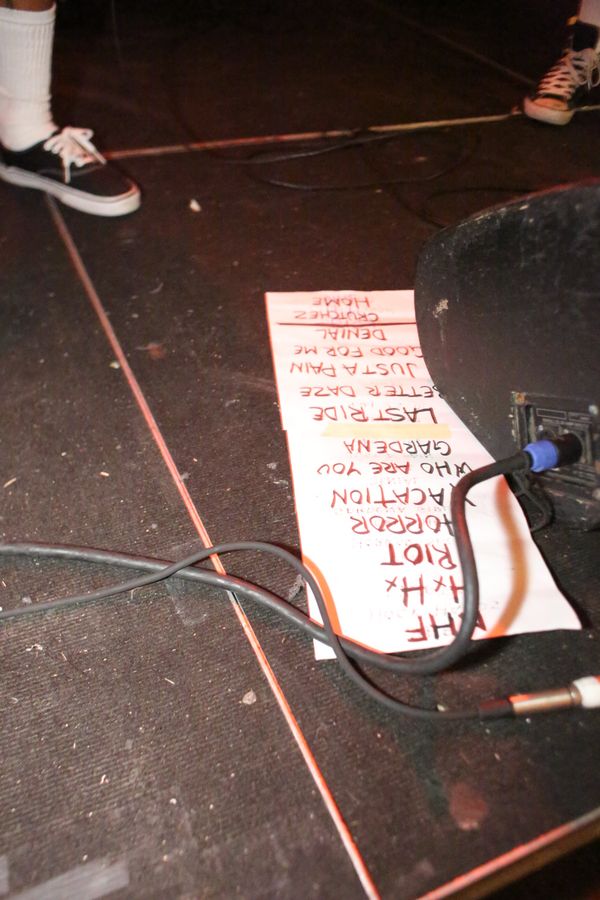 HxHx
RIOT
HORROR
VACATION
WHO ARE YOU
GARDENA
LAST RIDE
BETTER DAZE
JUST A PAIN
GOOD FOR ME
DENIAL
CRUTCHEZ
HOME